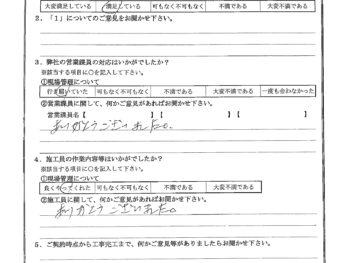 大変満足している 満足している 可もなく不可もなく 不満である 大変不満である
2．「1」についてのご意見をお聞かせ下さい。
3．弊社の営業課員の対応はいかがでしたか？
※該当する項目に○を記入して下さい。
①現場管理について
行き届いていた 可もなく不可もなく 不満である 大変不満である 一度も会わなかった
②営業課員に関して、何かご意見があればお聞かせ下さい。
営業課員名【 】【 】【 】
ありがとうございました。
4．施工員の作業内容等はいかがでしたか？
※該当する項目に○を記入して下さい。
①現場管理について
良くやってくれた 可もなく不可もなく 不満である 大変不満である
②施工員に関して、何かご意見があればお聞かせ下さい。
ありがとうございました。
5．ご契約時点から工事完工まで、何かご意見等がありましたらお聞かせ下さい。